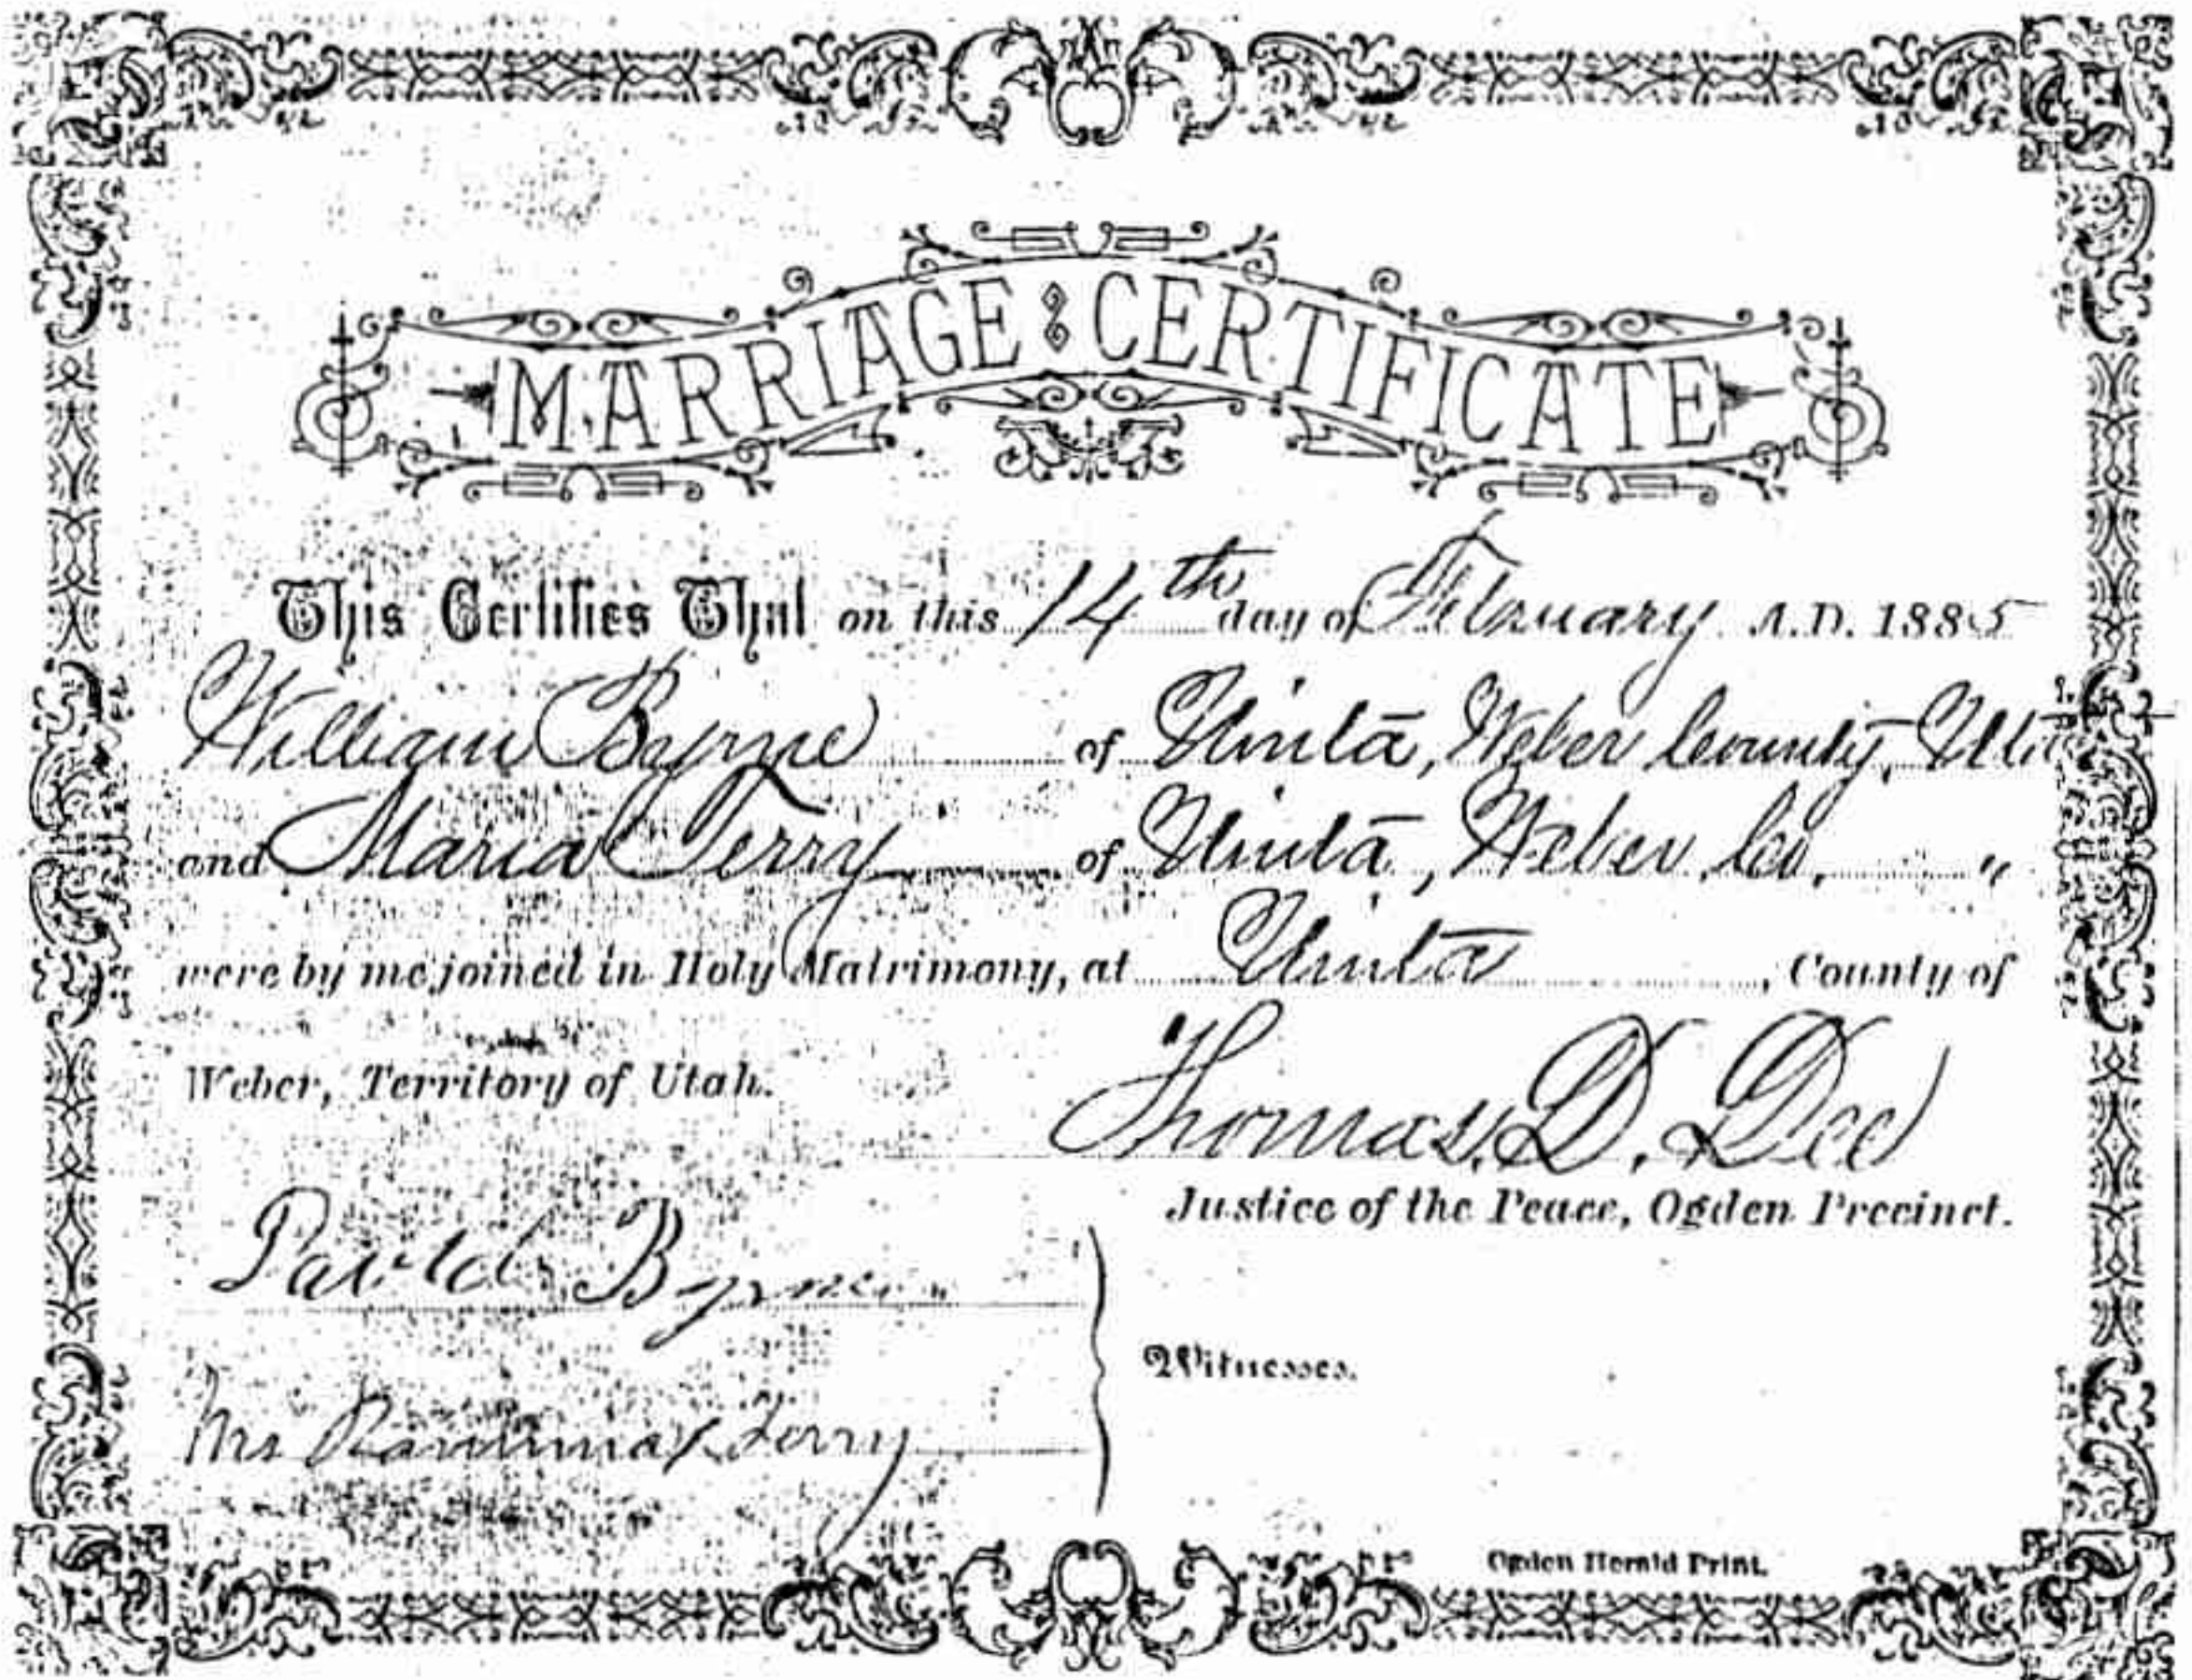 MARRIAGE CERTIFICATE
This Certifies That on this 14th day of February A.D. 1885
William Byrne of Uinta, Weber County, Uta
and Maria Terry of Uinta, Weber Co. "
were by me joined in Holy Matrimony, at Uinta, County of
Weber, Territory of Utah.
Thomas D. Dee
Justice of the Peace, Ogden Precinct.
Byrne
Witnesses.
Mrs Terry
Ogden Herald Print.